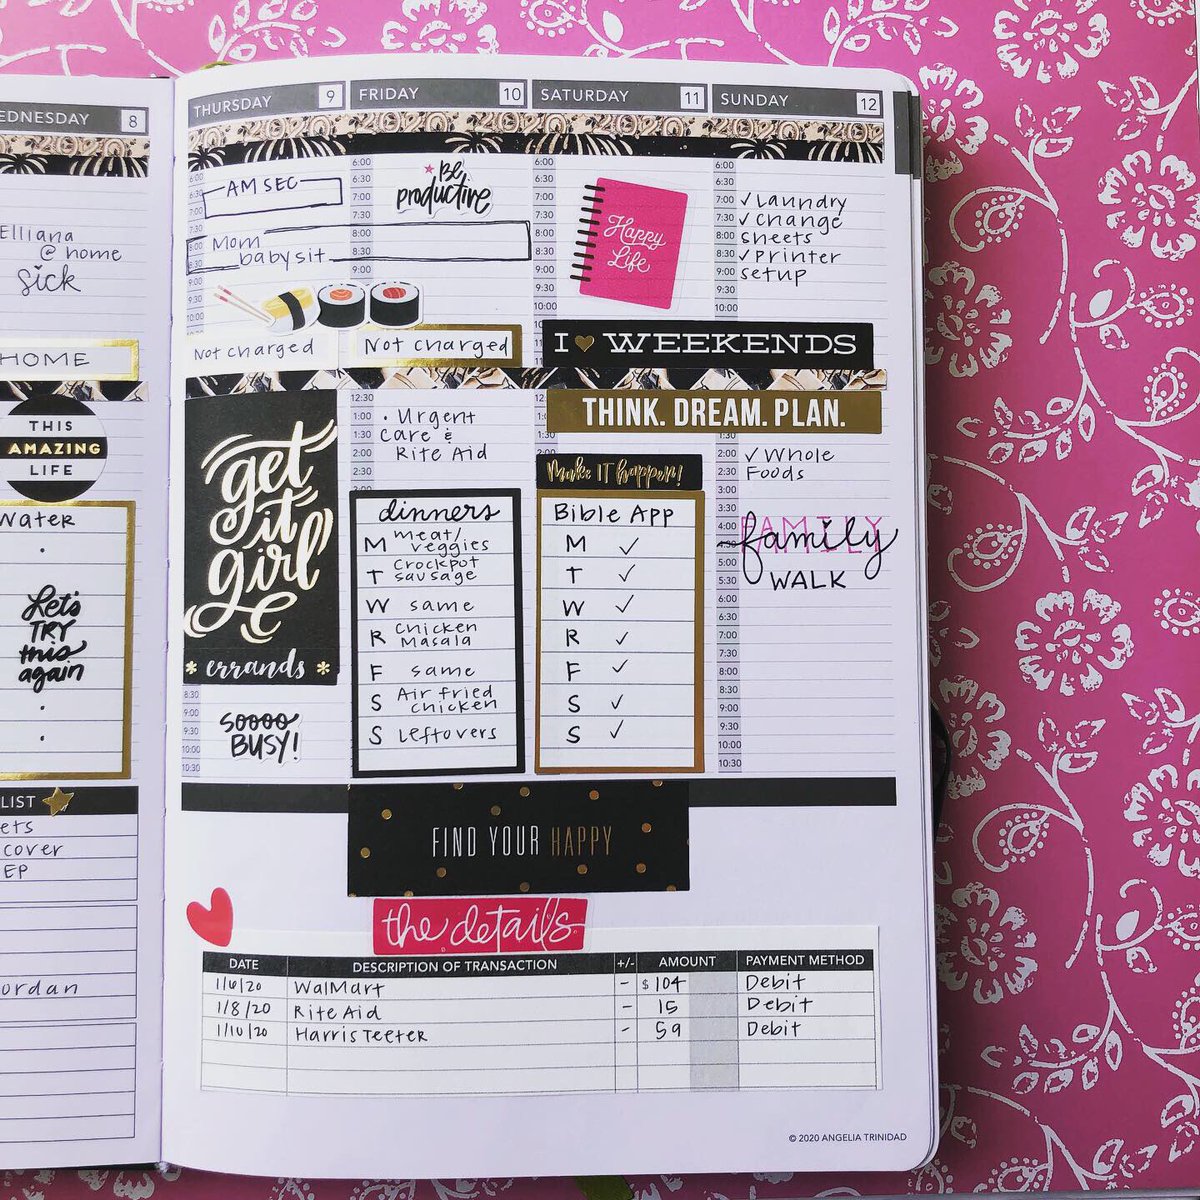 EDNESDAY 8
Elliana
@ home
Sick
HOME
THIS
AMAZING
LIFE
Water
Let's
TRY
this
again
LIST
ets
cover
EP
ordan
THURSDAY 9
AM SEC
Mom
babysit
Not charged
get
it
girl
* errands *
8:30
9:00
9:30
10:00
10:30
soooo
BUSY!
FRIDAY 10
6:00
6:30
7:00
7:30
8:00
8:30
9:00
Be
productive
Not charged
12:30
1:00
1:30
2:00
2:30
• Urgent
Care &
Rite Aid
dinners
M meat/
veggies
T Crockpot
sausage
W same
R Chicken
Masala
F same
S Air fried
chicken
S Leftovers
SATURDAY 11
6:00
6:30
7:00
7:30
8:00
8:30
9:00
9:30
10:00
Happy
Life
I WEEKENDS
THINK. DREAM. PLAN.
Make IT happen!
Bible App
M ✓
T ✓
W ✓
R ✓
F ✓
S ✓
S ✓
SUNDAY 12
6:00
6:30
7:00
7:30
8:00
8:30
9:00
9:30
10:00
✓ Laundry
✓ Change
sheets
✓ Printer
setup
✓ Whole
Foods
FAMILY
family
WALK
2:00
2:30
3:00
3:30
4:00
5:00
5:30
6:00
6:30
7:00
7:30
8:00
8:30
9:00
9:30
10:00
10:30
FIND YOUR HAPPY
the details
DATE DESCRIPTION OF TRANSACTION +/- AMOUNT PAYMENT METHOD
1/6/20 WalMart - $104 Debit
1/8/20 Rite Aid - 15 Debit
1/10/20 Harris Teeter - 59 Debit
© 2020 ANGELIA TRINIDAD